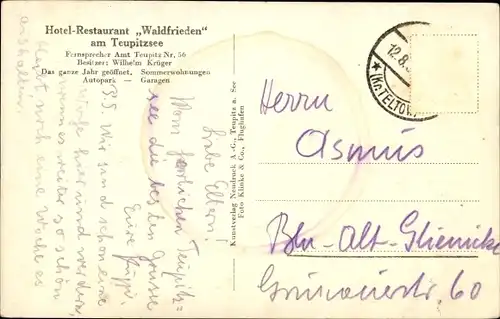 Hotel-Restaurant „Waldfrieden“
am Teupitzsee
Fernsprecher Amt Teupitz Nr. 56
Besitzer: Wilhelm Krüger
Das ganze Jahr geöffnet. Sommerwohnungen
Autopark — Garagen
Liebe Eltern!
Vom herrlichen Teupitz-
see die besten Grüsse
Eure
P.S. Wir sind schon eine
Woche hier und werden,
wenn es weiter so schön
bleibt noch eine Woche es
aushalten.
Kunstverlag Neudruck A.-G., Teupitz a. See
Foto Klinke & Co., Flughafen
12.8.
(KR. TELTOW)
Herrn
Asmus
Bln-Alt-Glienicke
Grünauerstr. 60